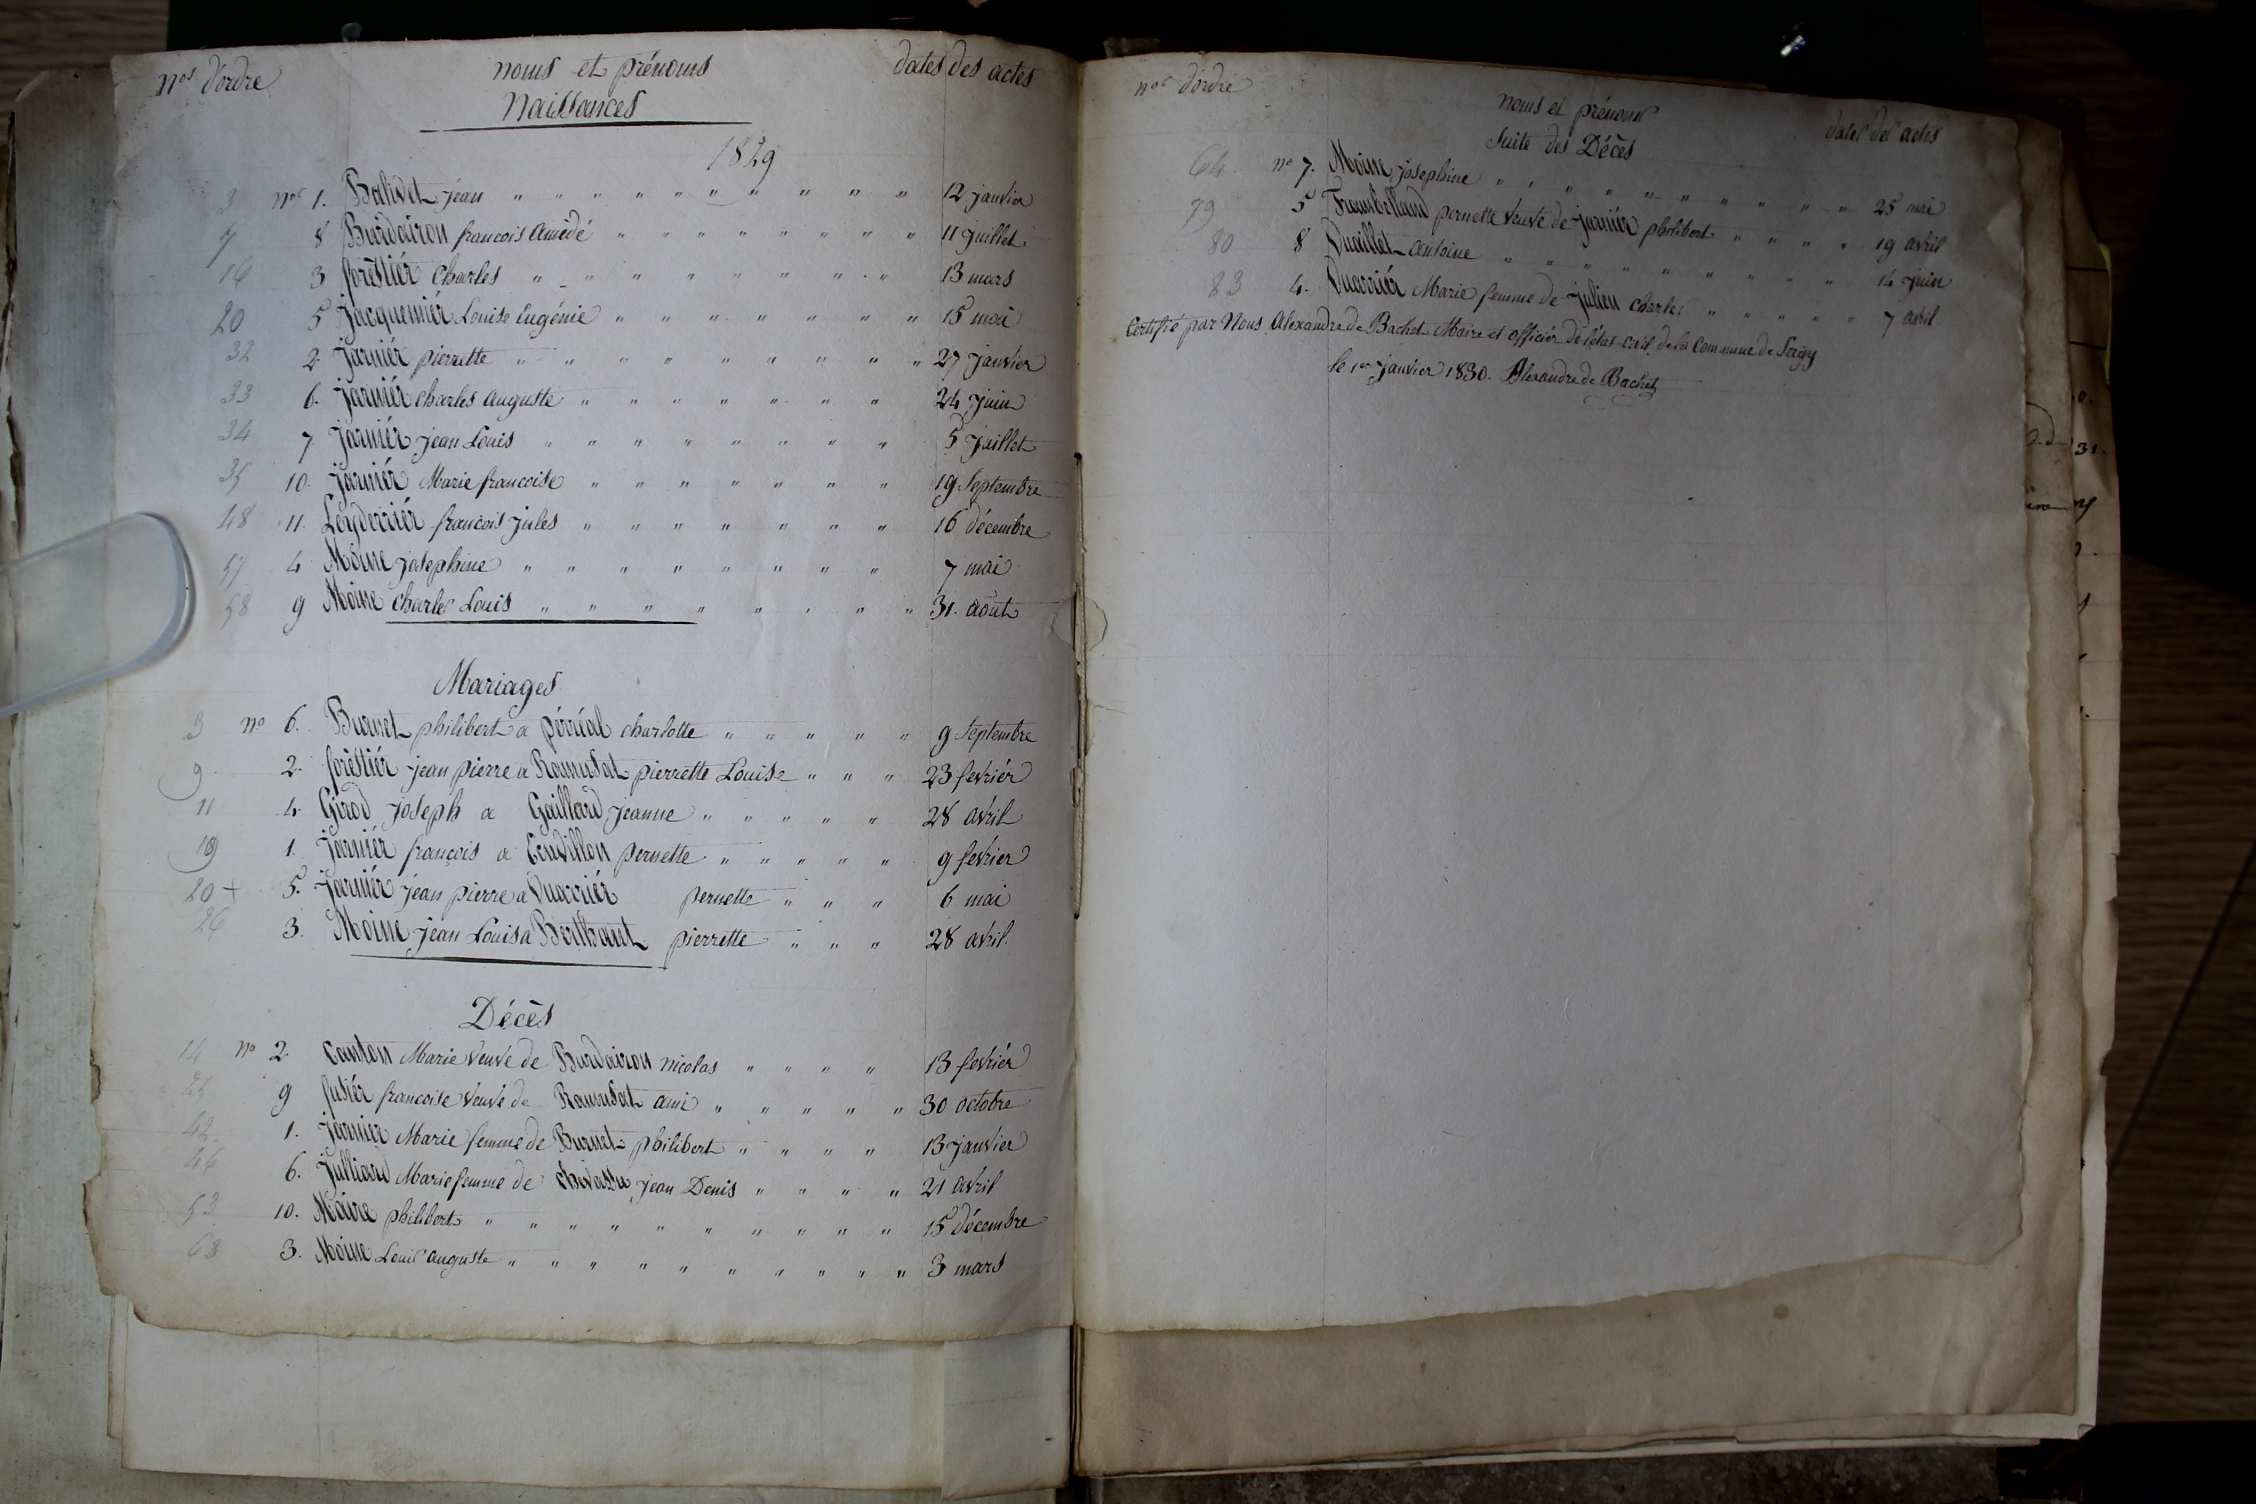 nos d'ordre noms et prénoms dates des actes
Naissances
1829
3 nos 1. Balivet jean " " " " " " " " " 12 janvier
7 8 Burdairon francois Amédé " " " " " " " " 11 juillet
16 3 forêstiér Charles " " " " " " " " 13 mars
20 5 jacquemiér Louise Eugénie " " " " " " " 15 mai
32 2. jarniér pierrette " " " " " " " " " 27 janvier
33 6. jarniér charles auguste " " " " " " " 24 juin
34 7 jarniér jean Louis " " " " " " " " 5 juillet
35 10. jarniér Marie francoise " " " " " " " 19 Septembre
48 11. Leyderriér francois jules " " " " " " " 16 décembre
57 4 Moine josephine " " " " " " " " 7 mai
58 9 Moine charles Louis " " " " " " " " 31. août
Mariages
3 no 6. Burnet philibert a pérréal charlotte " " " " " 9 Septembre
9 2. forêstiér jean pierre a Ramusat pierrette Louise " " " 23 fevriér
11 4. Girod joseph a Gaillard jeanne " " " " " 28 avril
19 1. jarniér françois a pernette " " " " " 9 fevrier
20 + 5. jarniér jean pierre a Vuarriér pernette " " " 6 mai
26 3. Moine jean Louis a Berthaut pierrette " " " 28 avril
Décès
14 no 2. Canton Marie veuve de Burdairon nicolas " " " " 13 fevriér
9 fusiér francoise veuve de Ramusat ami " " " " " 30 octobre
42 1. jarniér Marie femme de Burnet philibert " " " " 13 janvier
46 6. julliard Marie femme de chevassu jean Denis " " " " 21 avril
53 10. Maire philibert " " " " " " " " " " 15 décembre
63 3. Moine Louis auguste " " " " " " " " " 3 mars
nos d'ordre noms et prénoms dates des actes
Suite des Décès
64 no 7. Moine josephine " " " " " " " " " 25 mai
79 5 pernette veuve de jarniér philibert " " " " 19 avril
80 8 Vuaillet antoine " " " " " " " " " 14 juin
83 4. Vuarriér Marie femme de julien charles " " " " " 7 avril
Certifié par Nous Alexandre de Bachet Maire et officiér de l'état-civil de la Commune de Sergy
le 1er janvier 1830. Alexandre de Bachet